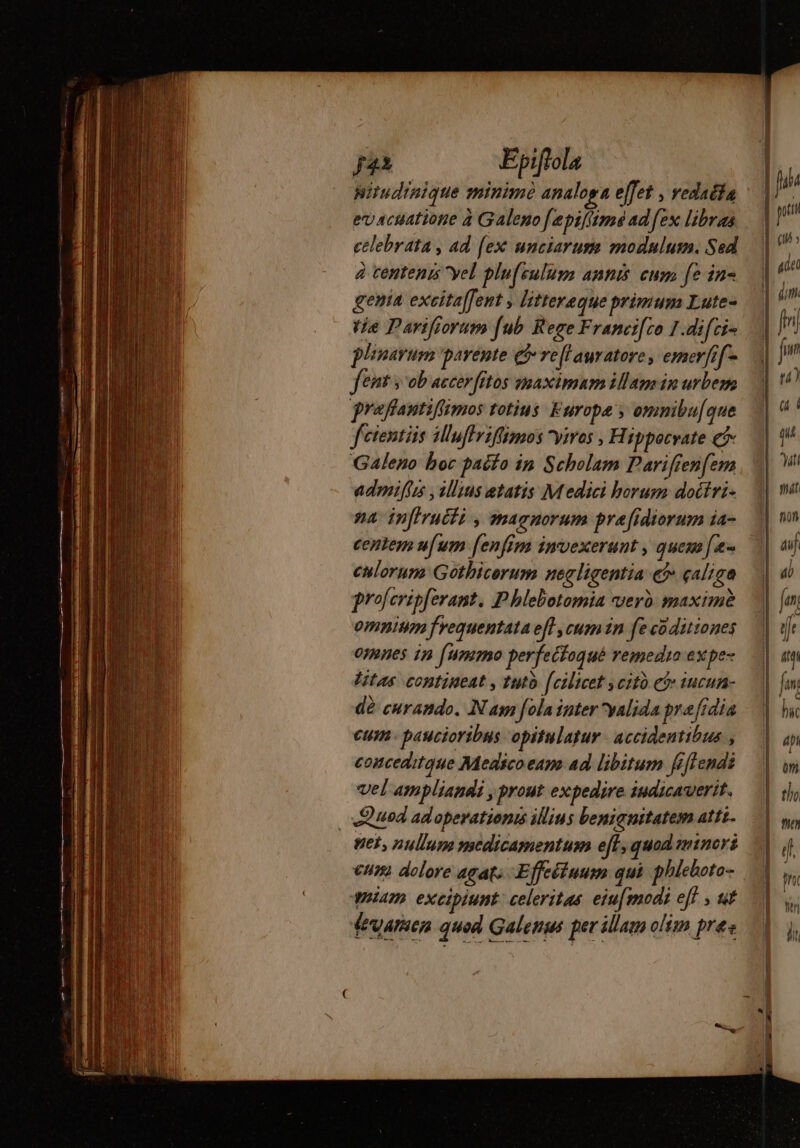 342 Epiſtola
nitudinique minimè analoga eſſet, redacta
evacuatione à Galeno ſæpiſſimè ad ſex libras
celebrata, ad ſex unciarum modulum. Sed
à centenis vel pluſculùm annis cum ſe in-
genia excitaſſent, litteræque primùm Lute-
tiæ Pariſiorum ſub Rege Franciſco I. diſci-
plinarum parente & reſtauratore, emerſiſ-
ſent, ob accerſitos maximam illam in urbem
præſtantiſſimos totius Europæ, omnibuſque
ſcientiis illuſtriſſimos viros, Hippocrate &
Galeno hoc pacto in Scholam Pariſienſem
admiſſis, illius ætatis Medici horum doctri-
na inſtructi, magnorum præſidiorum ia-
centem uſum ſenſim invexerunt, quem ſæ-
culorum Gothicorum negligentia & caligo
proſcripſerant. Phlebotomia verò maximè
omnium frequentata eſt, cum in ſe cõditiones
omnes in ſummo perfectoque remedio expe-
titas contineat, tutò ſcilicet, citò & iucun-
dè curando. Nam ſola inter valida præſidia
cum paucioribus opitulatur accidentibus,
conceditque Medico eam ad libitum ſiſtendi
vel ampliandi, prout expedire iudicaverit.
Quod ad operationis illius benignitatem atti-
net, nullum medicamentum eſt, quod minori
cum dolore agat. Effectuum qui phleboto-
miam excipiunt celeritas eiuſmodi eſt, ut
levamen quod Galenus per illam olim præ-